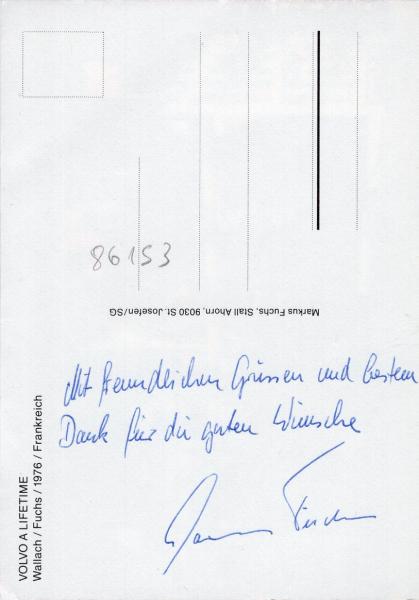 86153
Markus Fuchs, Stall Ahorn, 9030 St. Josefen/SG
Mit freundlichen Grüssen und bestem
Dank für die guten Wünsche
VOLVO A LIFETIME
Wallach / Fuchs / 1976 / Frankreich